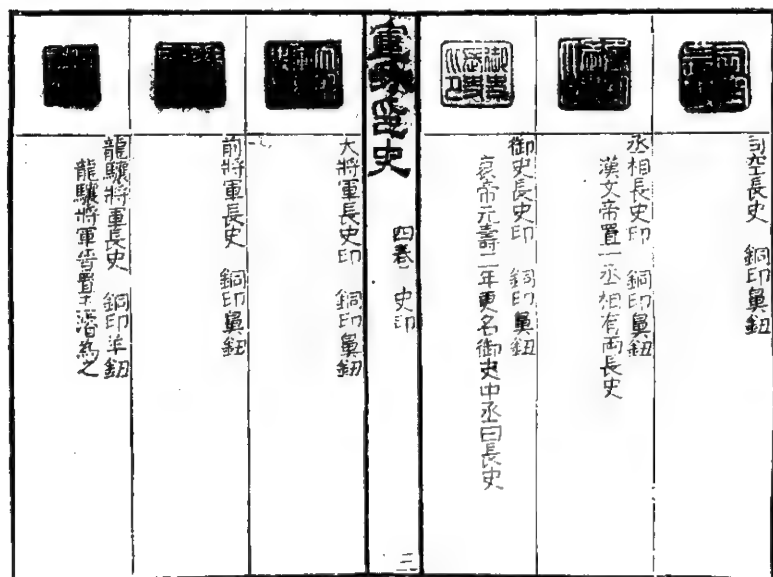 司空長史 銅印鼻鈕
丞相長史印 銅印鼻鈕
漢文帝置一丞相有兩長史
御史長史印 銅印鼻鈕
哀帝元壽二年更名御史中丞曰長史
宣和印史 四卷 史印 三
大將軍長史印 銅印鼻鈕
前將軍長史 銅印鼻鈕
龍驤將軍長史 銅印羊鈕
龍驤將軍晉置王濬為之